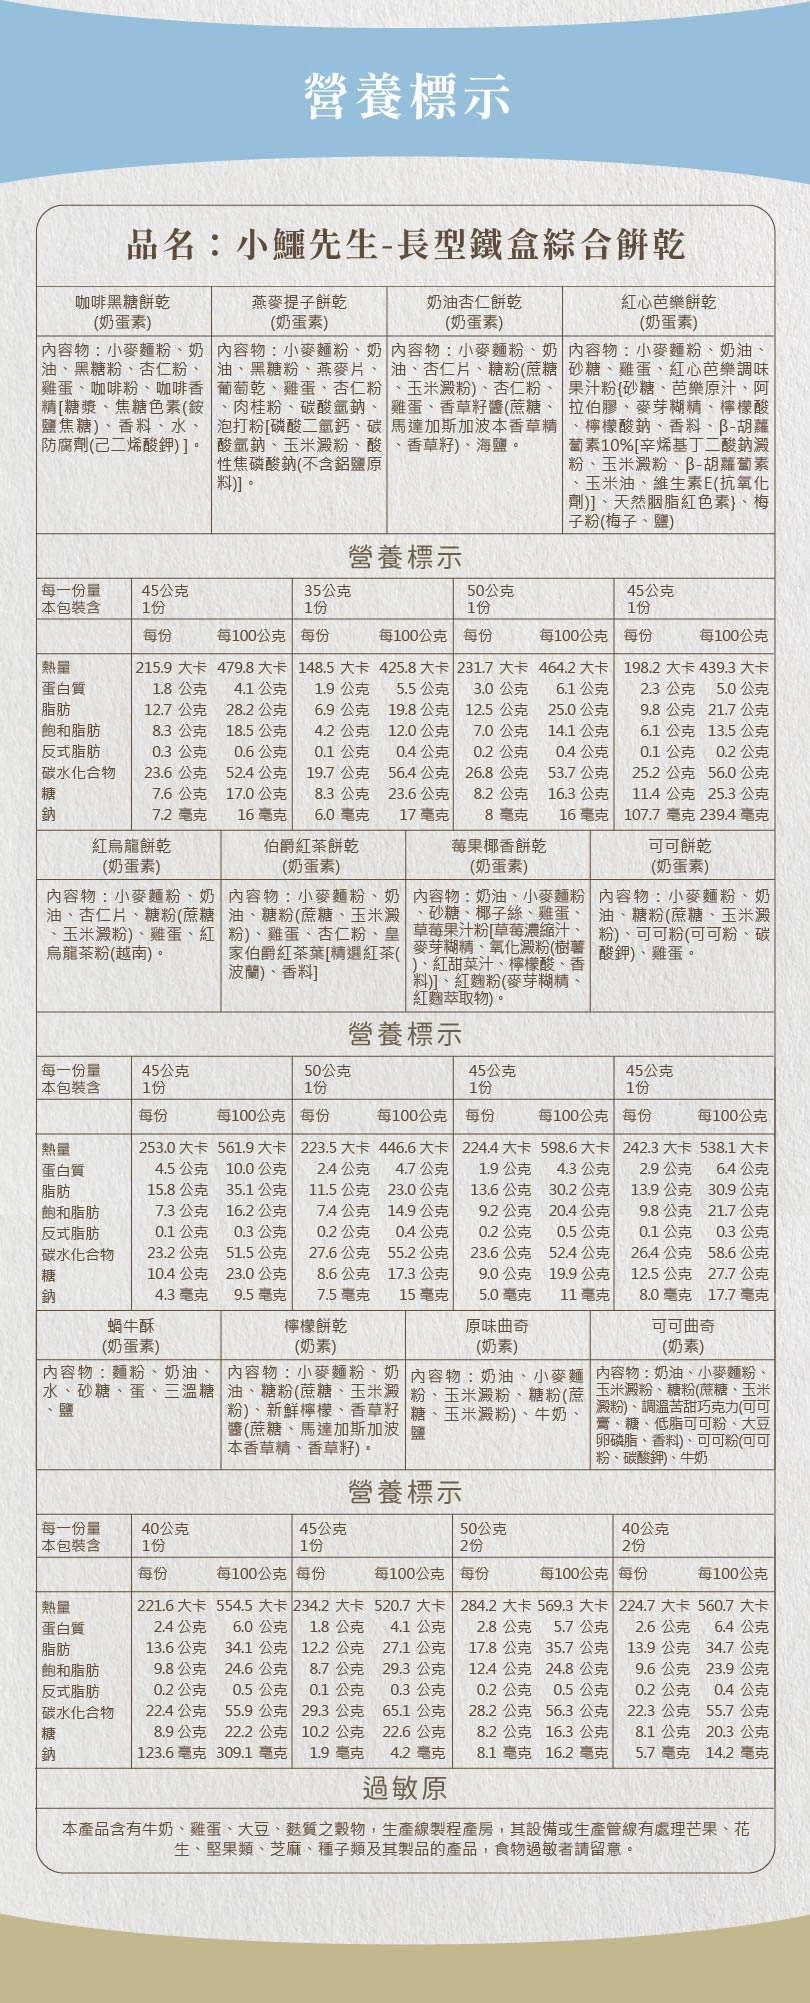 營養標示
品名：小鱷先生-長型鐵盒綜合餅乾
咖啡黑糖餅乾
(奶蛋素)
燕麥提子餅乾
(奶蛋素)
奶油杏仁餅乾
(奶蛋素)
紅心芭樂餅乾
(奶蛋素)
內容物：小麥麵粉、奶
油、黑糖粉、杏仁粉、
雞蛋、咖啡粉、咖啡香
精[糖漿、焦糖色素(銨
鹽焦糖)、香料、水、
防腐劑(己二烯酸鉀) ]。
內容物：小麥麵粉、奶
油、黑糖粉、燕麥片、
葡萄乾、雞蛋、杏仁粉
、肉桂粉、碳酸氫鈉、
泡打粉[磷酸二氫鈣、碳
酸氫鈉、玉米澱粉、酸
性焦磷酸鈉(不含鋁鹽原
料)]。
內容物：小麥麵粉、奶
油、杏仁片、糖粉(蔗糖
、玉米澱粉)、杏仁粉、
雞蛋、香草籽醬(蔗糖、
馬達加斯加波本香草精
、香草籽)、海鹽。
內容物：小麥麵粉、奶油、
砂糖、雞蛋、紅心芭樂調味
果汁粉{砂糖、芭樂原汁、阿
拉伯膠、麥芽糊精、檸檬酸
、檸檬酸鈉、香料、β-胡蘿
蔔素10%[辛烯基丁二酸鈉澱
粉、玉米澱粉、β-胡蘿蔔素
、玉米油、維生素E(抗氧化
劑)]、天然胭脂紅色素}、梅
子粉(梅子、鹽)
營養標示
每一份量 45公克 35公克 50公克 45公克
本包裝含 1份 1份 1份 1份
每份 每100公克 每份 每100公克 每份 每100公克 每份 每100公克
熱量 215.9 大卡 479.8 大卡 148.5 大卡 425.8 大卡 231.7 大卡 464.2 大卡 198.2 大卡 439.3 大卡
蛋白質 1.8 公克 4.1 公克 1.9 公克 5.5 公克 3.0 公克 6.1 公克 2.3 公克 5.0 公克
脂肪 12.7 公克 28.2 公克 6.9 公克 19.8 公克 12.5 公克 25.0 公克 9.8 公克 21.7 公克
飽和脂肪 8.3 公克 18.5 公克 4.2 公克 12.0 公克 7.0 公克 14.1 公克 6.1 公克 13.5 公克
反式脂肪 0.3 公克 0.6 公克 0.1 公克 0.4 公克 0.2 公克 0.4 公克 0.1 公克 0.2 公克
碳水化合物 23.6 公克 52.4 公克 19.7 公克 56.4 公克 26.8 公克 53.7 公克 25.2 公克 56.0 公克
糖 7.6 公克 17.0 公克 8.3 公克 23.6 公克 8.2 公克 16.3 公克 11.4 公克 25.3 公克
鈉 7.2 毫克 16 毫克 6.0 毫克 17 毫克 8 毫克 16 毫克 107.7 毫克 239.4 毫克
紅烏龍餅乾
(奶蛋素)
伯爵紅茶餅乾
(奶蛋素)
莓果椰香餅乾
(奶蛋素)
可可餅乾
(奶蛋素)
內容物：小麥麵粉、奶
油、杏仁片、糖粉(蔗糖
、玉米澱粉)、雞蛋、紅
烏龍茶粉(越南)。
內容物：小麥麵粉、奶
油、糖粉(蔗糖、玉米澱
粉)、雞蛋、杏仁粉、皇
家伯爵紅茶葉[精選紅茶(
波蘭)、香料]
內容物：奶油、小麥麵粉
、砂糖、椰子絲、雞蛋、
草莓果汁粉[草莓濃縮汁、
麥芽糊精、氧化澱粉(樹薯
)、紅甜菜汁、檸檬酸、香
料)]、紅麴粉(麥芽糊精、
紅麴萃取物)。
內容物：小麥麵粉、奶
油、糖粉(蔗糖、玉米澱
粉)、可可粉(可可粉、碳
酸鉀)、雞蛋。
營養標示
每一份量 45公克 50公克 45公克 45公克
本包裝含 1份 1份 1份 1份
每份 每100公克 每份 每100公克 每份 每100公克 每份 每100公克
熱量 253.0 大卡 561.9 大卡 223.5 大卡 446.6 大卡 224.4 大卡 598.6 大卡 242.3 大卡 538.1 大卡
蛋白質 4.5 公克 10.0 公克 2.4 公克 4.7 公克 1.9 公克 4.3 公克 2.9 公克 6.4 公克
脂肪 15.8 公克 35.1 公克 11.5 公克 23.0 公克 13.6 公克 30.2 公克 13.9 公克 30.9 公克
飽和脂肪 7.3 公克 16.2 公克 7.4 公克 14.9 公克 9.2 公克 20.4 公克 9.8 公克 21.7 公克
反式脂肪 0.1 公克 0.3 公克 0.2 公克 0.4 公克 0.2 公克 0.5 公克 0.1 公克 0.3 公克
碳水化合物 23.2 公克 51.5 公克 27.6 公克 55.2 公克 23.6 公克 52.4 公克 26.4 公克 58.6 公克
糖 10.4 公克 23.0 公克 8.6 公克 17.3 公克 9.0 公克 19.9 公克 12.5 公克 27.7 公克
鈉 4.3 毫克 9.5 毫克 7.5 毫克 15 毫克 5.0 毫克 11 毫克 8.0 毫克 17.7 毫克
蝸牛酥
(奶蛋素)
檸檬餅乾
(奶素)
原味曲奇
(奶素)
可可曲奇
(奶素)
內容物：麵粉、奶油、
水、砂糖、蛋、三溫糖
、鹽
內容物：小麥麵粉、奶
油、糖粉(蔗糖、玉米澱
粉)、新鮮檸檬、香草籽
醬(蔗糖、馬達加斯加波
本香草精、香草籽)。
內容物：奶油、小麥麵
粉、玉米澱粉、糖粉(蔗
糖、玉米澱粉)、牛奶、
鹽
內容物：奶油、小麥麵粉、
玉米澱粉、糖粉(蔗糖、玉米
澱粉)、調溫苦甜巧克力(可可
膏、糖、低脂可可粉、大豆
卵磷脂、香料)、可可粉(可可
粉、碳酸鉀)、牛奶
營養標示
每一份量 40公克 45公克 50公克 40公克
本包裝含 1份 1份 2份 2份
每份 每100公克 每份 每100公克 每份 每100公克 每份 每100公克
熱量 221.6 大卡 554.5 大卡 234.2 大卡 520.7 大卡 284.2 大卡 569.3 大卡 224.7 大卡 560.7 大卡
蛋白質 2.4 公克 6.0 公克 1.8 公克 4.1 公克 2.8 公克 5.7 公克 2.6 公克 6.4 公克
脂肪 13.6 公克 34.1 公克 12.2 公克 27.1 公克 17.8 公克 35.7 公克 13.9 公克 34.7 公克
飽和脂肪 9.8 公克 24.6 公克 8.7 公克 29.3 公克 12.4 公克 24.8 公克 9.6 公克 23.9 公克
反式脂肪 0.2 公克 0.5 公克 0.1 公克 0.3 公克 0.2 公克 0.5 公克 0.2 公克 0.4 公克
碳水化合物 22.4 公克 55.9 公克 29.3 公克 65.1 公克 28.2 公克 56.3 公克 22.3 公克 55.7 公克
糖 8.9 公克 22.2 公克 10.2 公克 22.6 公克 8.2 公克 16.3 公克 8.1 公克 20.3 公克
鈉 123.6 毫克 309.1 毫克 1.9 毫克 4.2 毫克 8.1 毫克 16.2 毫克 5.7 毫克 14.2 毫克
過敏原
本產品含有牛奶、雞蛋、大豆、麩質之穀物，生產線製程產房，其設備或生產管線有處理芒果、花
生、堅果類、芝麻、種子類及其製品的產品，食物過敏者請留意。